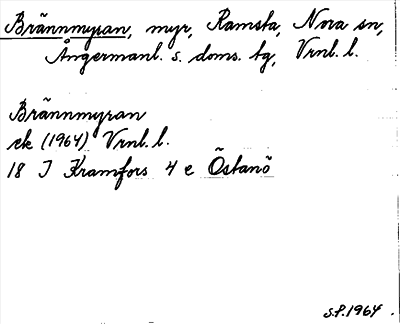 Brännmyran, myr, Ramsta, Nora sn,
Ångermanl. s. doms. tg, Vrnl. l.
Brännmyran
ek (1964) Vrnl. l.
18 I Kramfors 4 e Östanö
S.P. 1964.